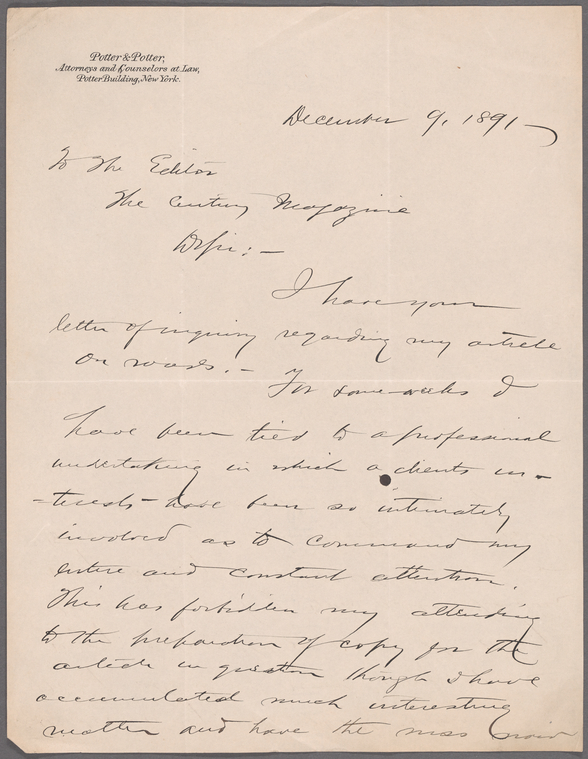 Potter & Potter,
Attorneys and Counselors at Law,
Potter Building, New York.
December 9, 1891
To the Editor
The Century Magazine
D Sir: —
I have your
letter of inquiry regarding my article
on roads. — For some weeks I
have been tied to a professional
undertaking in which a clients in-
-terests have been so intimately
involved as to command my
entire and constant attention.
This has forbidden my attending
to the preparation of copy for the
article in question though I have
accumulated much interesting
matter and have the mss now